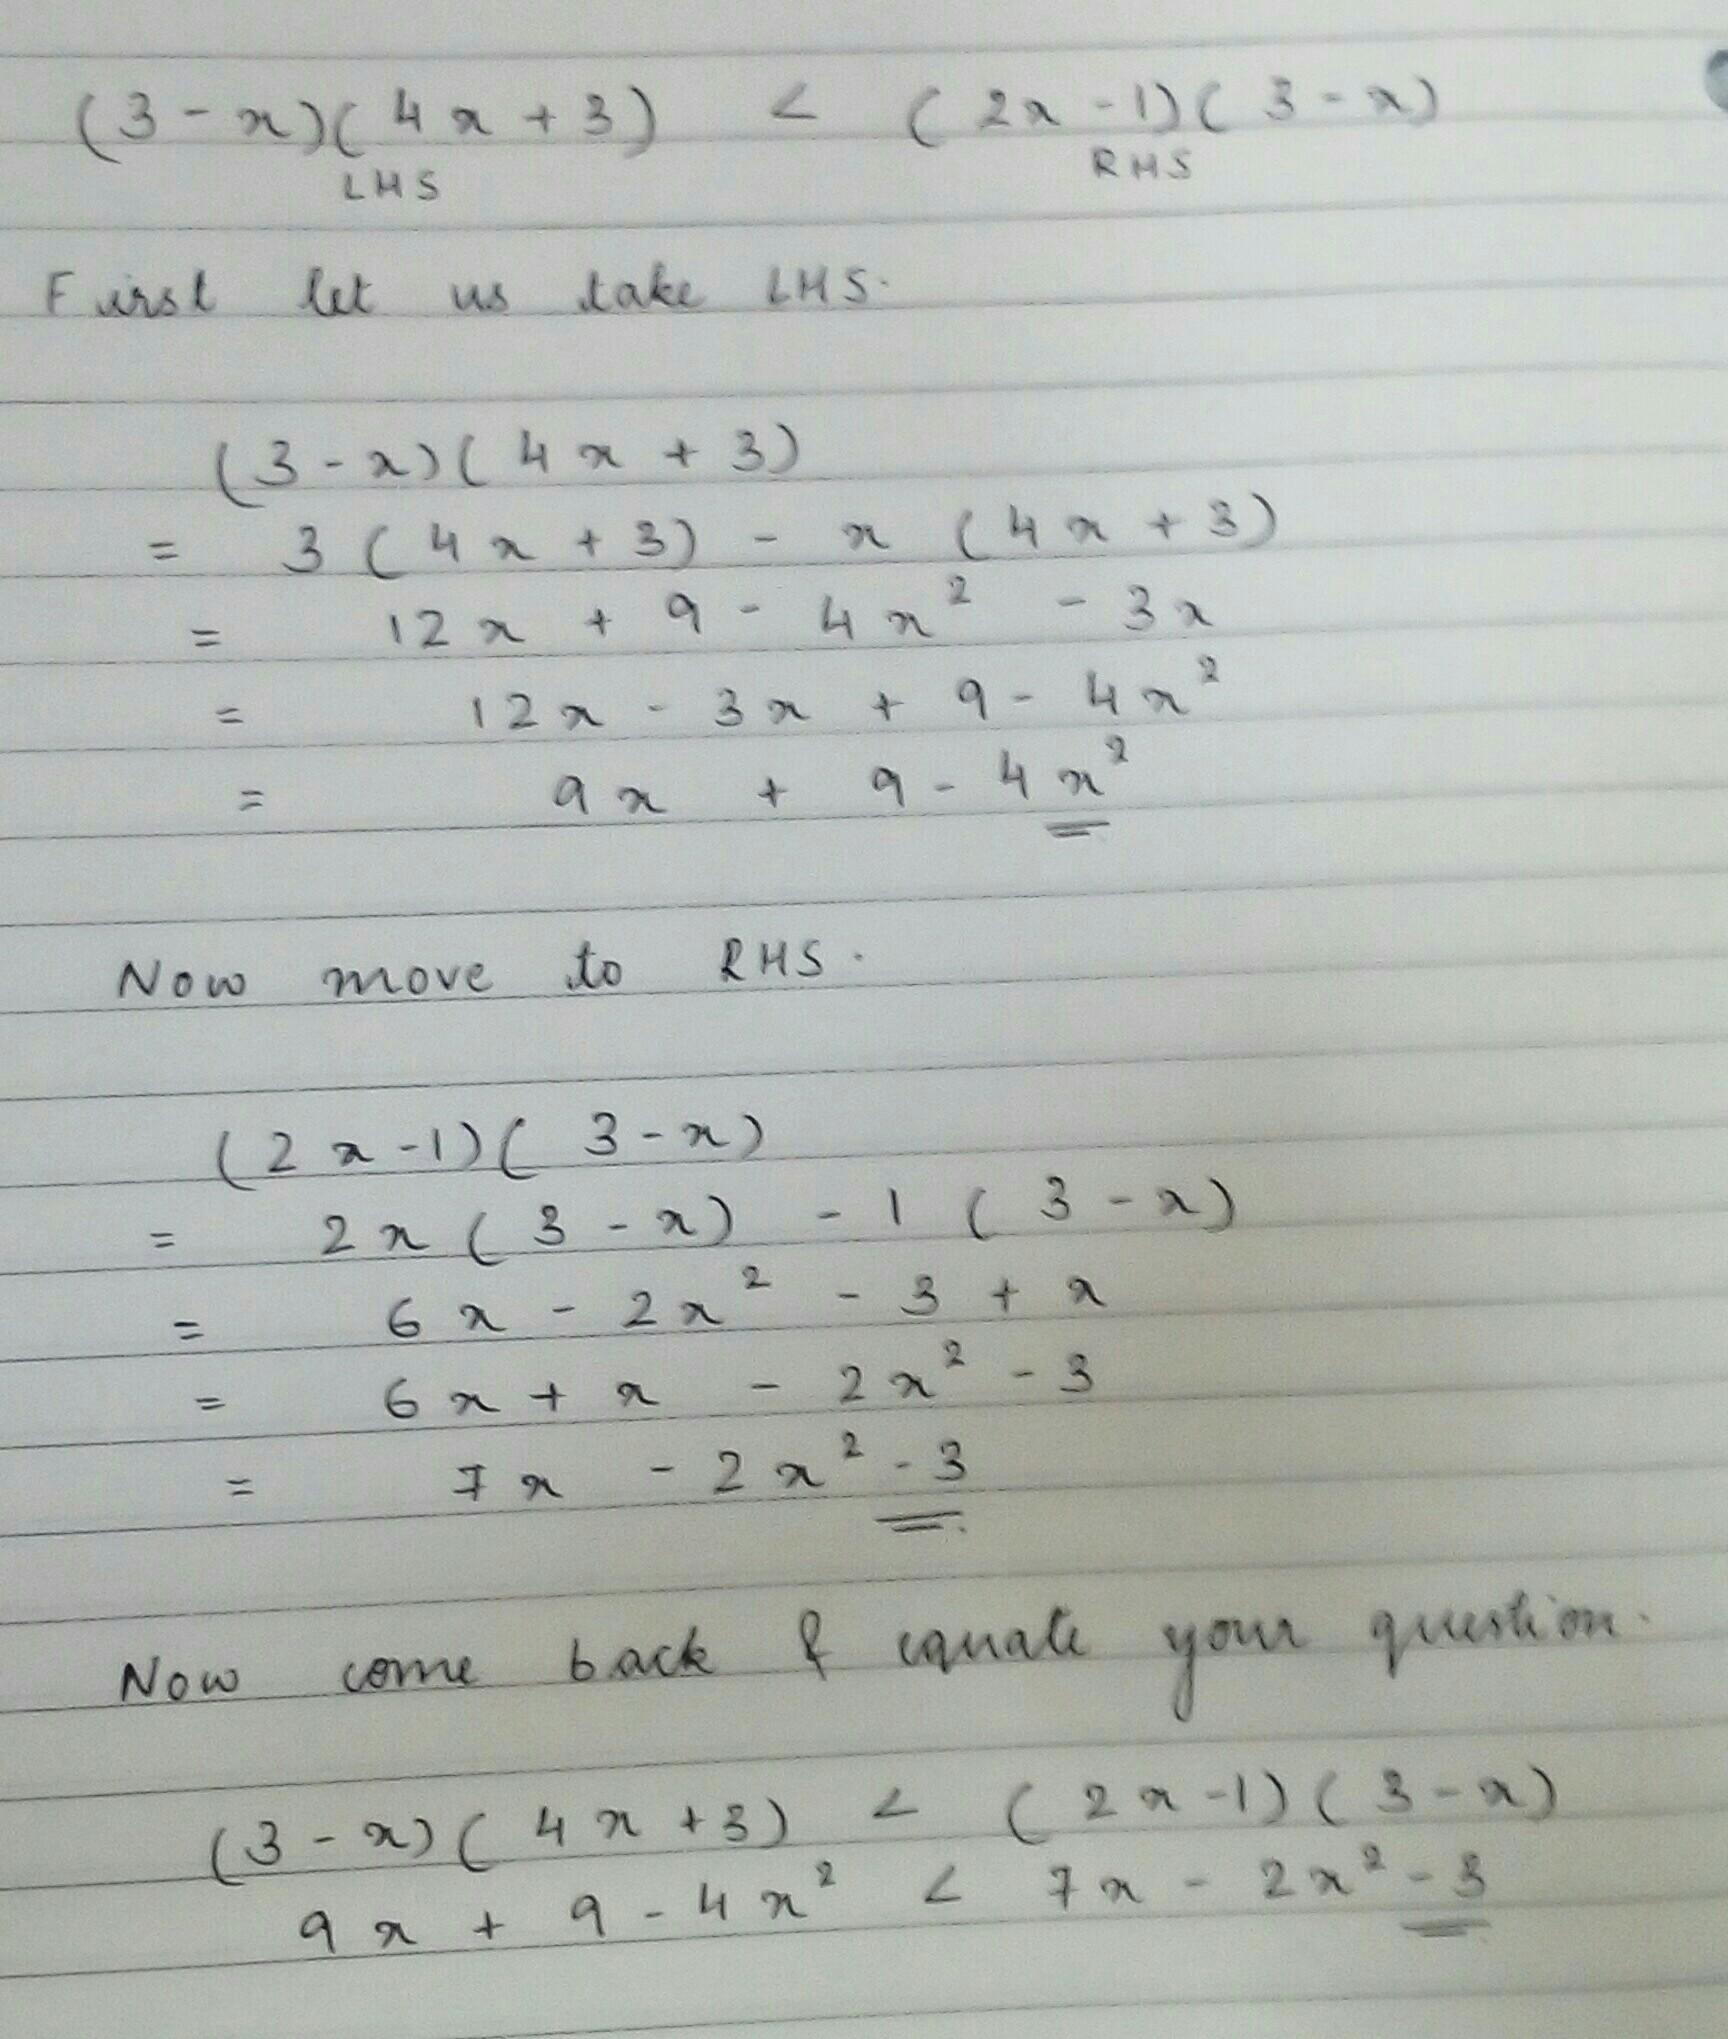 (3-x)(4x+3) < (2x-1)(3-x)
LHS RHS
First let us take LHS.
(3-x)(4x+3)
= 3(4x+3) - x(4x+3)
= 12x + 9 - 4x² - 3x
= 12x - 3x + 9 - 4x²
= 9x + 9 - 4x²
Now move to RHS.
(2x-1)(3-x)
= 2x(3-x) - 1(3-x)
= 6x - 2x² - 3 + x
= 6x + x - 2x² - 3
= 7x - 2x² - 3
Now come back & equate your question.
(3-x)(4x+3) < (2x-1)(3-x)
9x + 9 - 4x² < 7x - 2x² - 3